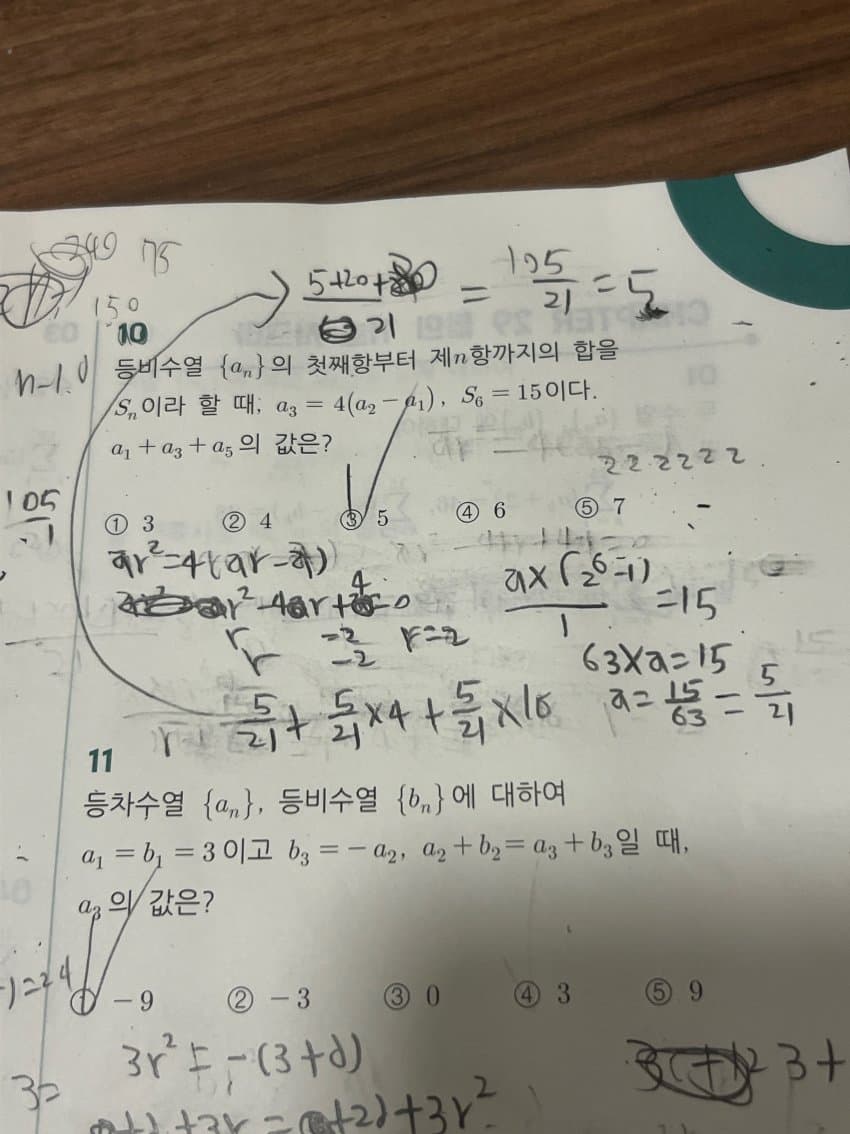 240 75
5+20+80 / 21 = 105/21 = 5
150
10
등비수열 {aₙ}의 첫째항부터 제n항까지의 합을
n-1.
Sₙ이라 할 때, a₃ = 4(a₂ - a₁), S₆ = 15이다.
a₁ + a₃ + a₅의 값은?
2 2 2 2 2 2
105
① 3 ② 4 ③ 5 ④ 6 ⑤ 7
ar²=4(ar-a)
a×(2⁶-1) / 1 =15
r -2 r=2
r -2
63×a=15
5/21 + 5/21 ×4 + 5/21 ×16
a= 15/63 = 5/21
11
등차수열 {aₙ}, 등비수열 {bₙ}에 대하여
a₁ = b₁ = 3이고 b₃ = - a₂, a₂ + b₂ = a₃ + b₃일 때,
a₃의 값은?
① -9 ② -3 ③ 0 ④ 3 ⑤ 9
3r² = -(3+d)
3+
3=
+3r = +2d+3r²